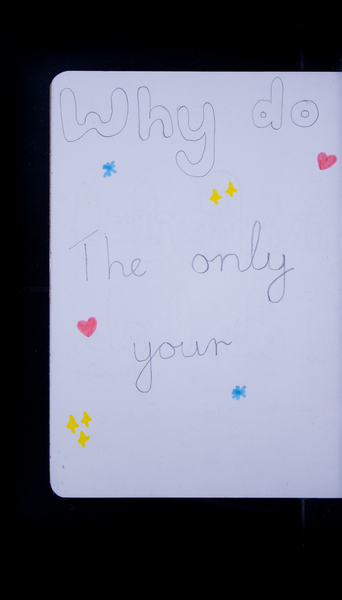 Why do
The only
your